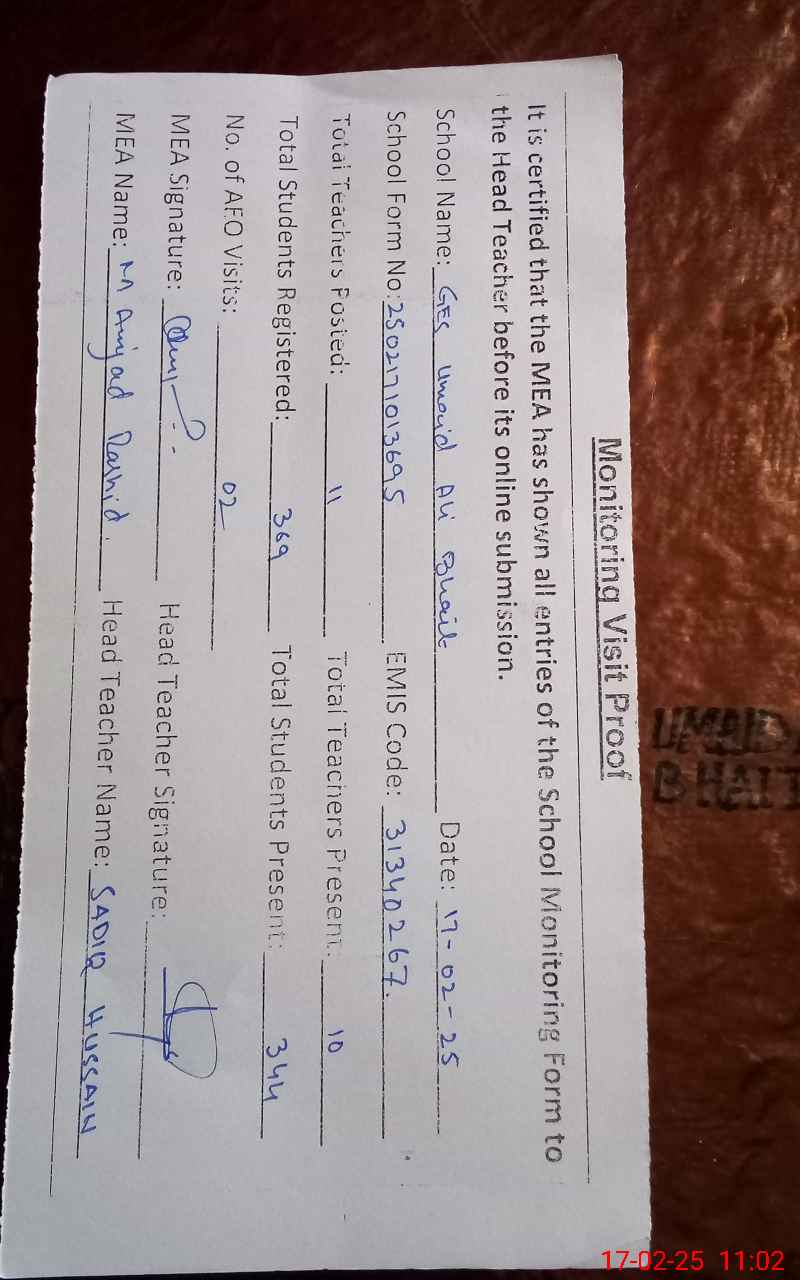 Monitoring Visit Proof
It is certified that the MEA has shown all entries of the School Monitoring Form to
the Head Teacher before its online submission.
School Name: GES Umaid Ali Bhait Date: 17-02-25
School Form No: 2502171013695 EMIS Code: 31340267.
Total Teachers Posted: 11 Total Teachers Present: 10
Total Students Registered: 369 Total Students Present: 344
No. of AEO Visits: 02
MEA Signature: Head Teacher Signature:
MEA Name: M Amjad Rashid. Head Teacher Name: SADIQ HUSSAIN
UMAID
BHAIT
17-02-25 11:02